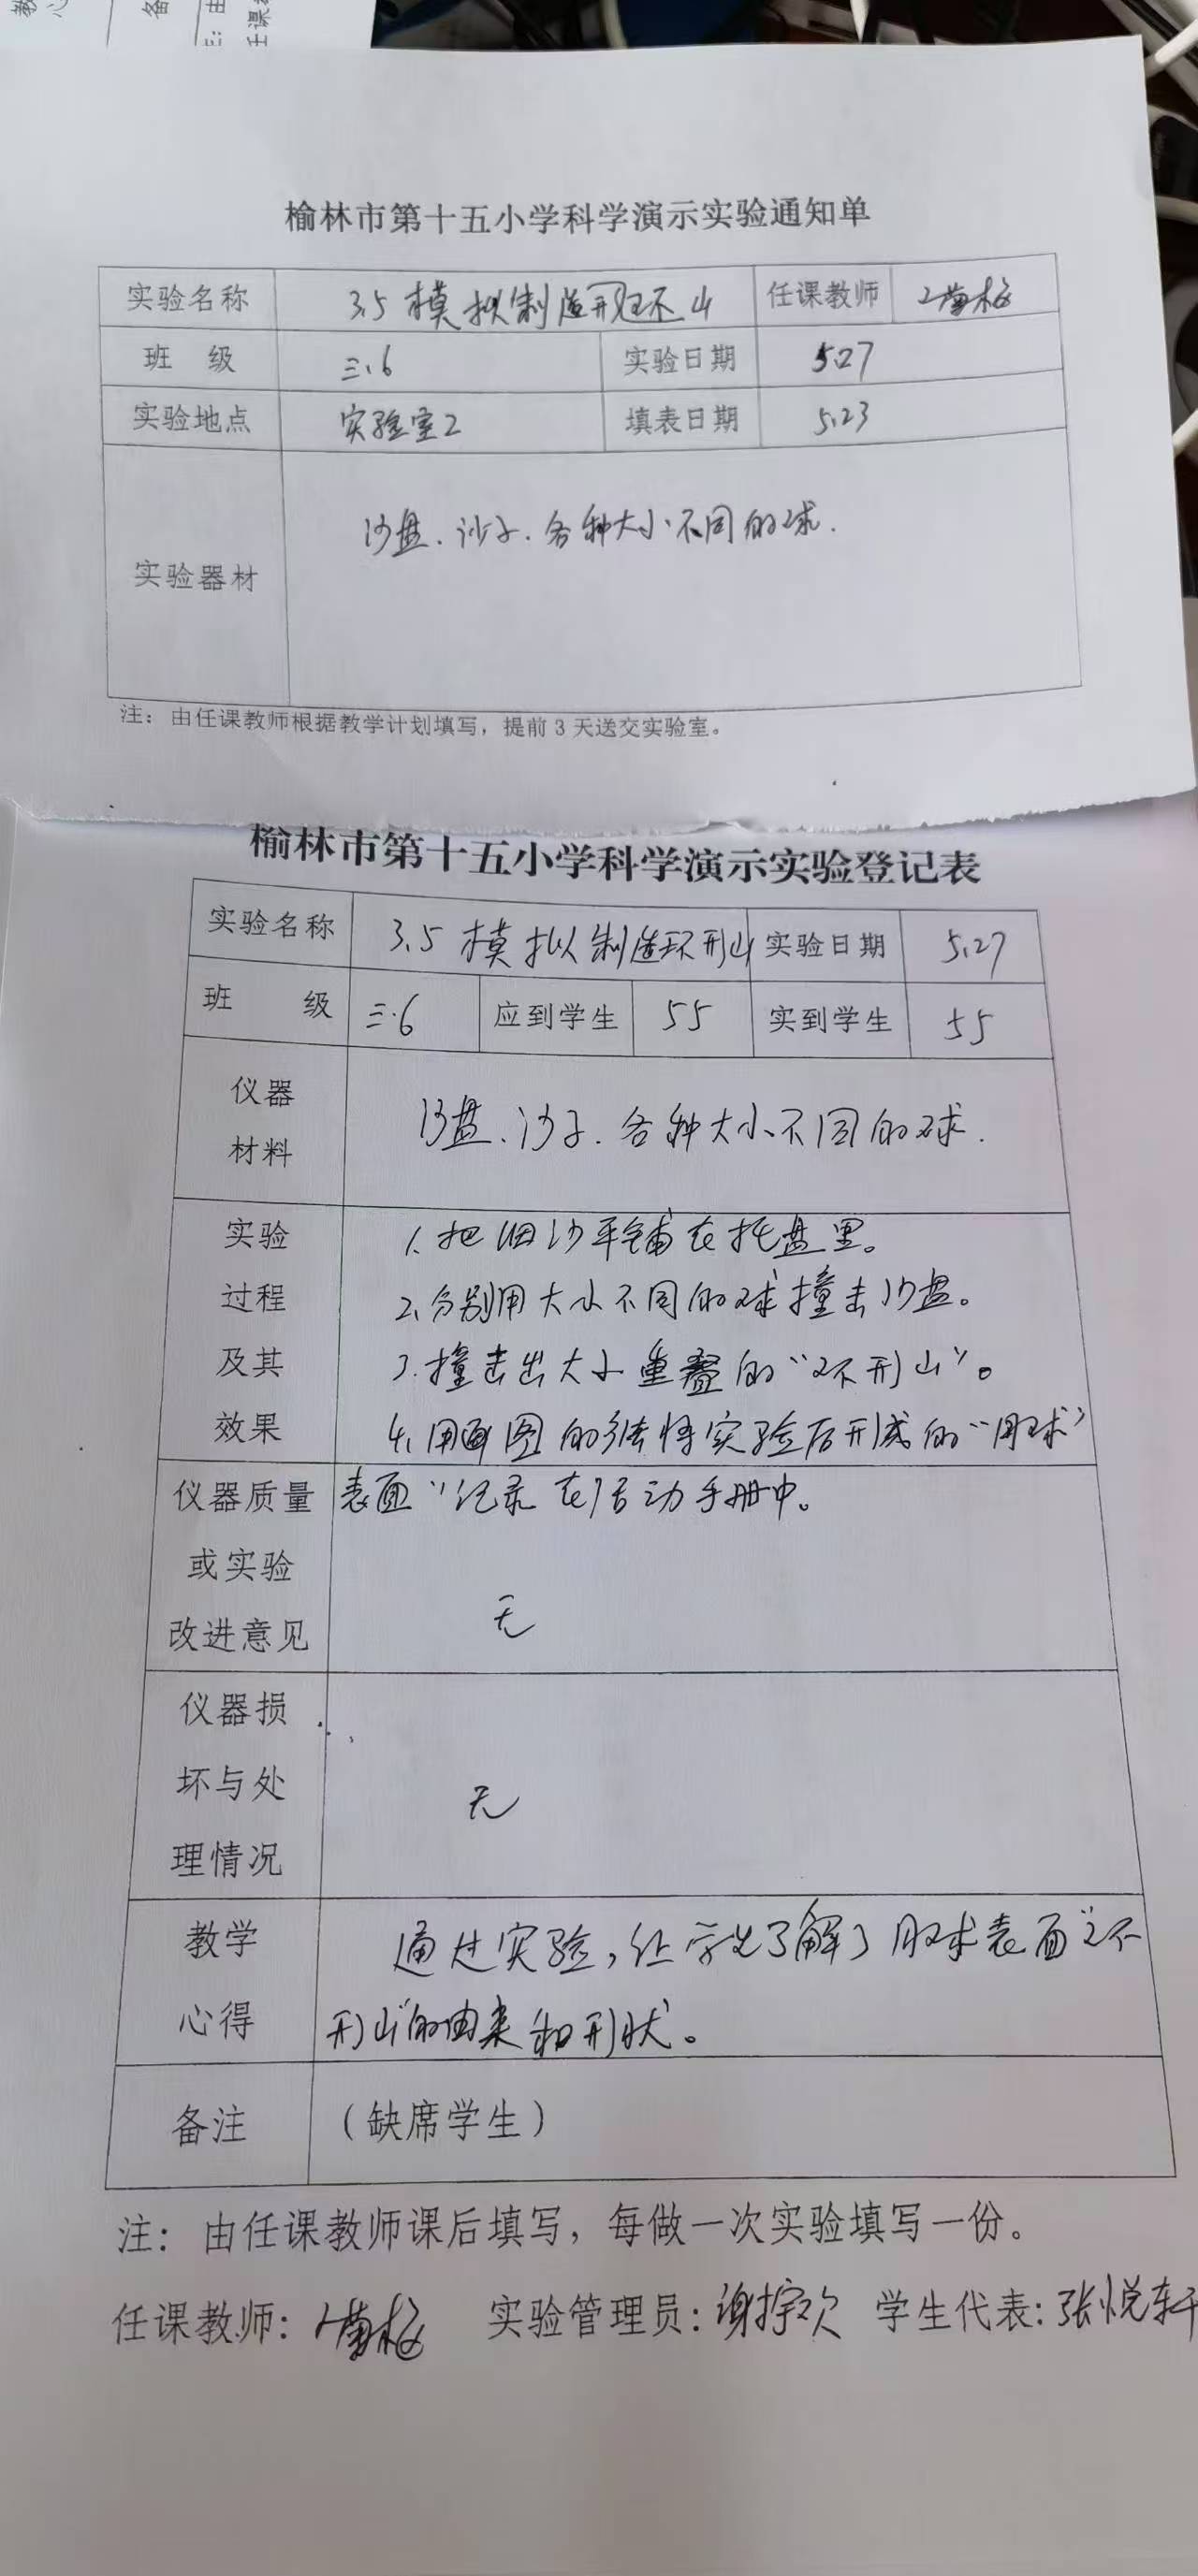 榆林市第十五小学科学演示实验通知单
实验名称 3.5 模拟制造形环山 任课教师
班 级 三.6 实验日期 5.27
实验地点 实验室2 填表日期 5.23
实验器材 沙盘、沙子、各种大小不同的球.
注：由任课教师根据教学计划填写，提前 3 天送交实验室。
榆林市第十五小学科学演示实验登记表
实验名称 3.5 模拟制造环形山 实验日期 5.27
班 级 三.6 应到学生 55 实到学生 55
仪器
材料
沙盘、沙子、各种大小不同的球.
实验
过程
及其
效果
1.把细沙平铺在托盘里。
2.分别用大小不同的球撞击沙盘。
3.撞击出大小重叠的“环形山”。
4.用画图的方法将实验后形成的“月球
表面”记录在活动手册中。
仪器质量
或实验
改进意见
无
仪器损
坏与处
理情况
无
教学
心得
通过实验，让学生了解了月球表面“环
形山”的由来和形状。
备注 （缺席学生）
注：由任课教师课后填写，每做一次实验填写一份。
任课教师： 实验管理员： 学生代表：张悦轩